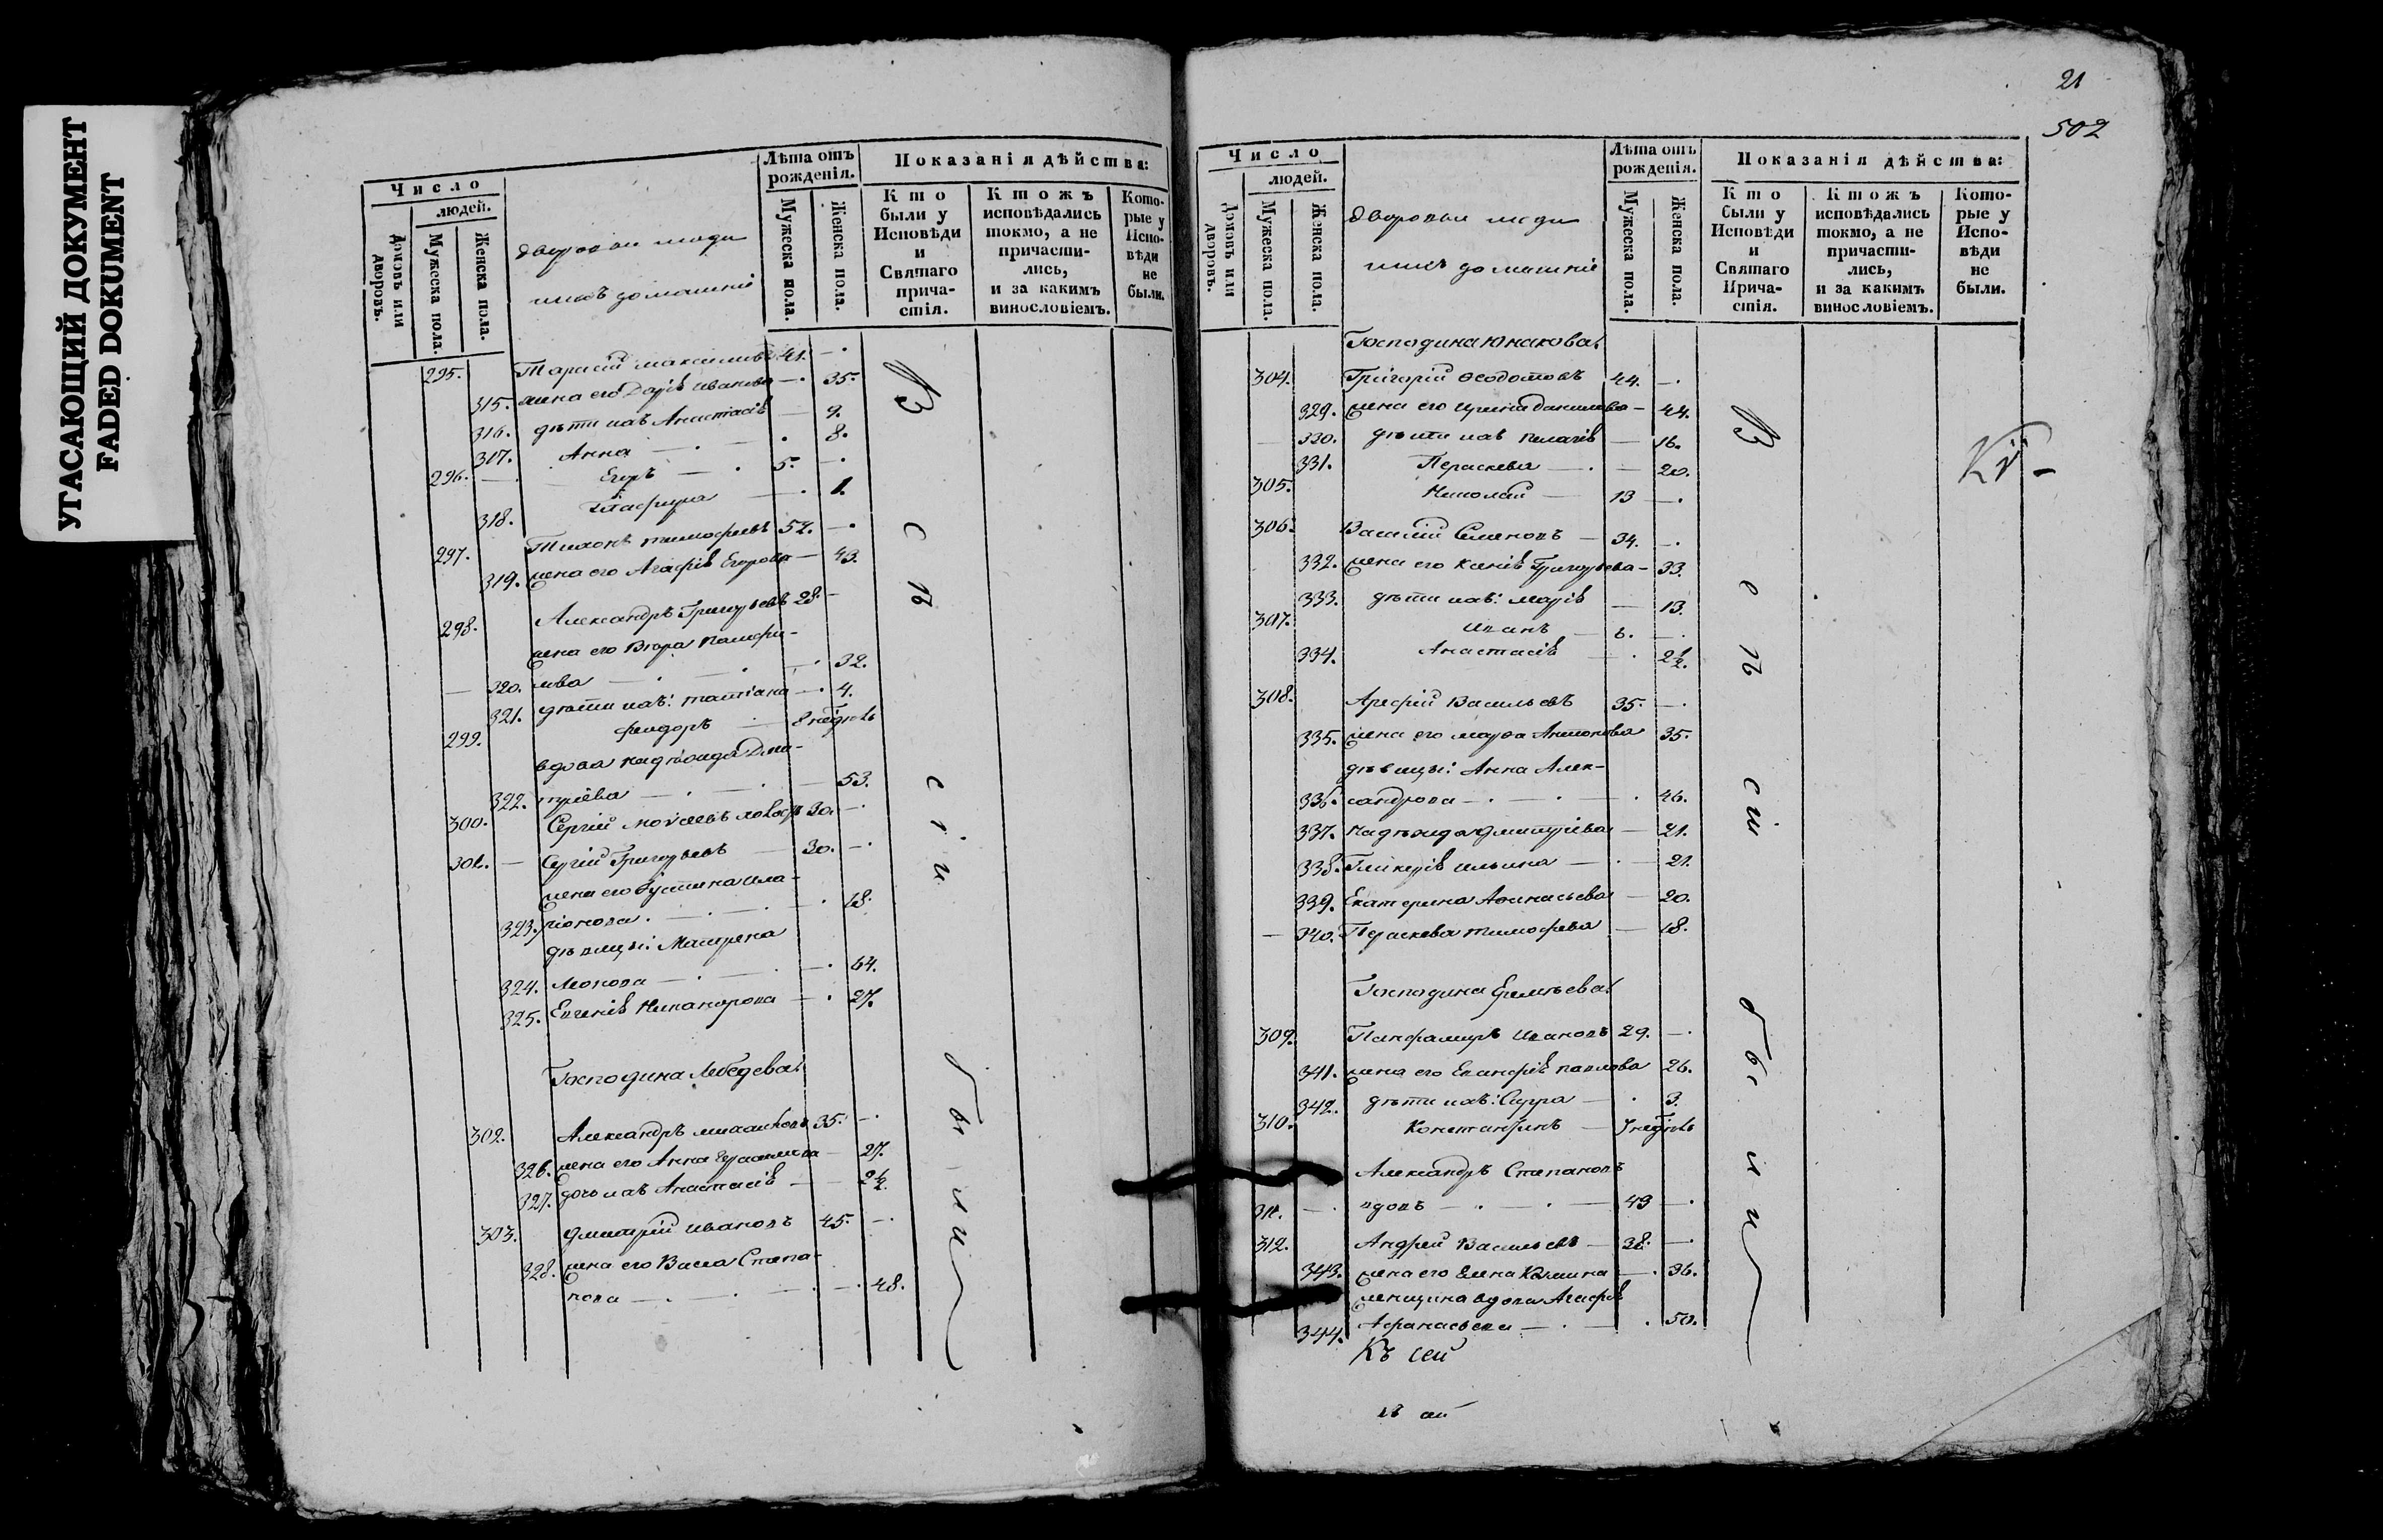 УГАСАЮЩИЙ ДОКУМЕНТ
FADED DOCUMENT
Число
людей.
Домовъ или дворовъ.
Мужеска пола.
Женска пола.
дворовыи люди
ихъ домашніе
Лѣта отъ рожденія.
Мужеска пола.
Женска пола.
Показанія дѣйства:
Кто были у Исповѣди и Святаго прича-стія.
Ктожъ исповѣдались токмо, а не причасти-лись, и за какимъ винословіемъ.
Кото-рые у Испо-вѣди не были.
295. Тарасій Максимовъ 41. —.
315. жена его Дарія Иванова —. 35.
316. дѣти ихъ Анастасія — 9.
317. Анна —. — . 8.
296. —. Егоръ —. 5. —.
318. Глафира —. 1.
297. Тихонъ Тимофеевъ 52. —.
319. жена его Агафія Егорова — 43.
298. Александръ Григорьевъ 28. —
жена его
— 320. —. . —. 32.
321. дѣти ихъ: Татіана —. 4.
299. Феидоръ — 8 недѣль
вдова Надѣжда Дми-
322. тріева —. —. — 53.
300. Сергій 30. —.
301. — Сергій Григорьевъ — 30. —.
жена его Іустина Ила-
323. ріонова. —. —. . 18.
дѣвицы: Матрена
324. Леонова —. —. —. 64.
325. Евгенія Никанорова —. 27.
Господина Лебедева:
302. Александръ Михаиловъ 35. —.
326. жена его Анна — 27.
327. дочь ихъ Анастасія — 2½.
303. Дмитрій Ивановъ 45. —.
328. жена его Васса Степа-
нова —. —. —. —. 48.
Вси сіи были
21
502
Число
людей.
Домовъ или дворовъ.
Мужеска пола.
Женска пола.
дворовыи люди
ихъ домашніе
Лѣта отъ рожденія.
Мужеска пола.
Женска пола.
Показанія дѣйства:
Кто были у Исповѣди и Святаго Прича-стія.
Ктожъ исповѣдались токмо, а не причасти-лись, и за какимъ винословіемъ.
Кото-рые у Испо-вѣди не были.
Господина Юнакова:
304. Григорій Ѳеодотовъ 44. —.
329. жена его Ирина Данилова — 44.
— 330. дѣти ихъ Пелагія — 16.
331. Параскева —. — 20.
305. Николай — 13 —.
306. Василій Семеновъ — 34. —.
332. жена его Ксенія Григорьева — 33.
333. дѣти ихъ: Марія — 13.
307. Иванъ — 6. —.
334. Анастасія —. 2½.
308. Арефій Васильевъ 35. —.
335. жена его Марѳа Антонова 35.
дѣвицы: Анна Алек-
336. сандрова —. —. —. 46.
337. Надѣжда Дмитріева — 21.
338. Гликерія Ильина —. — 21.
339. Екатерина Аѳанасьева — 20.
— 340. Параскева Тимофева — 18.
Господина
309. Ивановъ 29. —.
341. жена его Павлова 26.
342. дѣти ихъ: —. 3.
310. Константинъ — недѣль
Александръ Степановъ
311. —. вдовъ —. —. — 49 —.
312. Андрей Васильевъ — 38. —.
343. жена его Елена —. 36.
женщина вдова Агафія
344. Афанасьева —. —. 50.
Къ сей
Вси сіи были